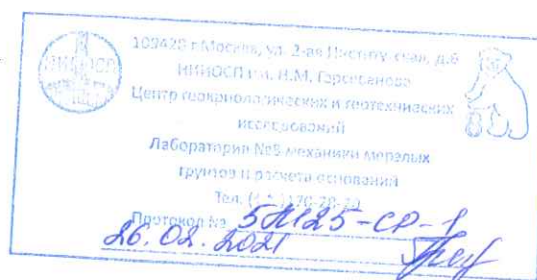 НИИОСП
109428 г.Москва, ул. 2-ая Институтская, д.6
НИИОСП им. Н.М. Герсеванова
Центр геокриологических и геотехнических
исследований
Лаборатория №8 механики мерзлых
грунтов и расчета оснований
Тел.
Протокол №
26.02.2021